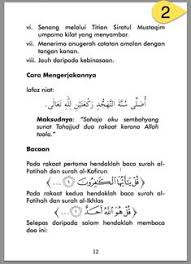 2
vi. Senang melalui Titian Siratul Mustaqim
umpama kilat yang menyambar.
vii. Menerima anugerah catatan amalan dengan
tangan kanan.
viii. Jauh daripada kebinasaan.
Cara Mengerjakannya
lafaz niat:
أُصَلِّي سُنَّةَ التَّهَجُّدِ رَكْعَتَيْنِ لِلَّهِ تَعَالَى.
Maksudnya: "Sahaja aku sembahyang
sunat Tahajjud dua rakaat kerana Allah
taala."
Bacaan
Pada rakaat pertama hendaklah baca surah al-
Fatihah dan surah al-Kafirun
﴿ قُلْ يَا أَيُّهَا الْكَافِرُونَ ١ ﴾
Pada rakaat kedua hendaklah baca surah al-
Fatihah dan surah al-Ikhlas
﴿ قُلْ هُوَ اللَّهُ أَحَدٌ ١ ﴾
Selepas daripada salam hendaklah membaca
doa ini:
12